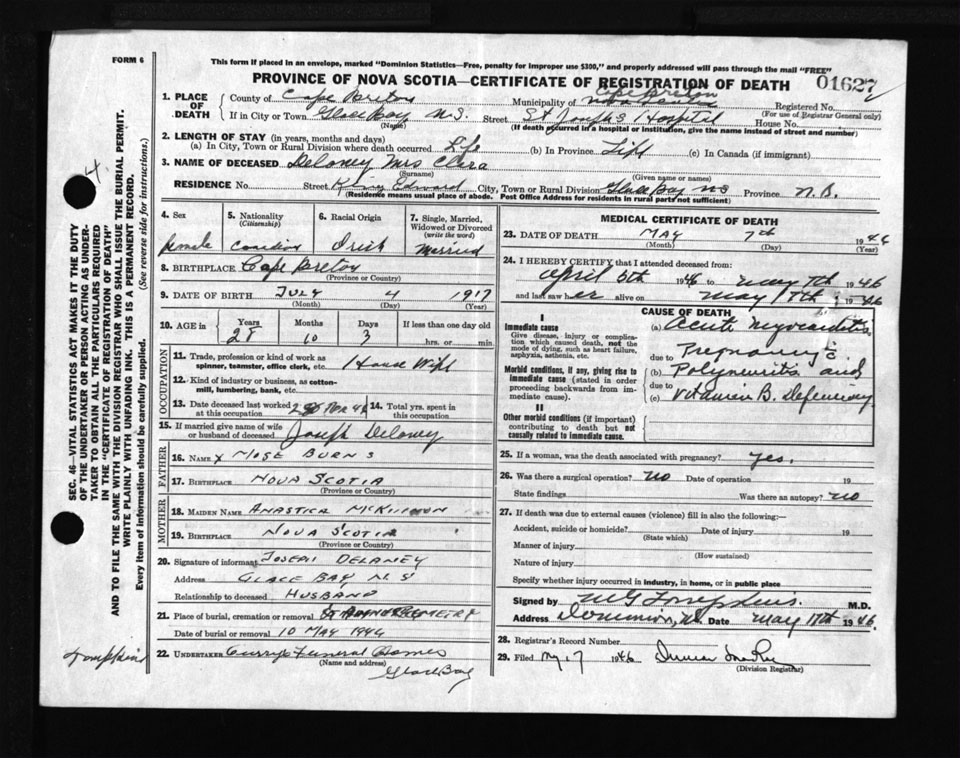 FORM 6
This form if placed in an envelope, marked "Dominion Statistics—Free, penalty for improper use $300," and properly addressed will pass through the mail "FREE"
PROVINCE OF NOVA SCOTIA—CERTIFICATE OF REGISTRATION OF DEATH
01627
1. PLACE OF DEATH
County of Cape Breton Municipality of Cape Breton Registered No.
(For use of Registrar General only)
If in City or Town Glace Bay N.S. Street St Josephs Hospital House No.
(Name) (If death occurred in a hospital or institution, give the name instead of street and number)
2. LENGTH OF STAY (in years, months and days)
(a) In City, Town or Rural Division where death occurred Life (b) In Province Life (c) In Canada (if immigrant)
3. NAME OF DECEASED Deloney Mrs Clara
(Surname) (Given name or names)
RESIDENCE No. Street King Edward City, Town or Rural Division Glace Bay NS Province
(Residence means usual place of abode. Post Office Address for residents in rural parts not sufficient)
4. Sex female
5. Nationality (Citizenship) Canadian
6. Racial Origin Irish
7. Single, Married, Widowed or Divorced (write the word) Married
8. BIRTHPLACE Cape Breton
(Province or Country)
9. DATE OF BIRTH JULY 4 1917
(Month) (Day) (Year)
10. AGE in Years 28 Months 10 Days 3 If less than one day old hrs. or min.
OCCUPATION
11. Trade, profession or kind of work as spinner, teamster, office clerk, etc. House Wife
12. Kind of industry or business, as cotton-mill, lumbering, bank, etc.
13. Date deceased last worked at this occupation
14. Total yrs. spent in this occupation
15. If married give name of wife or husband of deceased Joseph Deloney
FATHER
16. Name MOSE BURNS
17. Birthplace NOVA SCOTIA
(Province or Country)
MOTHER
18. Maiden Name
19. Birthplace NOVA SCOTIA
(Province or Country)
20. Signature of informant JOSEPH DELANEY
Address GLACE BAY N.S
Relationship to deceased HUSBAND
21. Place of burial, cremation or removal
Date of burial or removal 10 MAY 1946
22. UNDERTAKER Curry's Funeral Homes
(Name and address)
Glace Bay
Tompkins
MEDICAL CERTIFICATE OF DEATH
23. DATE OF DEATH MAY 7th 1946
(Month) (Day) (Year)
24. I HEREBY CERTIFY that I attended deceased from:
April 5th 1946 to May 7th 1946
and last saw her alive on May 7th 1946
CAUSE OF DEATH
I
Immediate cause
Give disease, injury or complication which caused death, not the mode of dying, such as heart failure, asphyxia, asthenia, etc.
(a) Acute Myocarditis
due to Pregnancy c̄
Morbid conditions, if any, giving rise to immediate cause (stated in order proceeding backwards from immediate cause).
(b) Polyneuritis and
due to
(c) Vitamin B. Deficiency
II
Other morbid conditions (if important) contributing to death but not causally related to immediate cause.
25. If a woman, was the death associated with pregnancy? yes.
26. Was there a surgical operation? NO Date of operation 19
State findings Was there an autopsy? NO
27. If death was due to external causes (violence) fill in also the following:—
Accident, suicide or homicide? Date of injury 19
(State which)
Manner of injury
(How sustained)
Nature of injury
Specify whether injury occurred in industry, in home, or in public place
Signed by M.D.
Address Dominion, N.S. Date May 17th 1946.
28. Registrar's Record Number
29. Filed 1946
(Division Registrar)
SEC. 46—VITAL STATISTICS ACT MAKES IT THE DUTY OF THE UNDERTAKER OR PERSON ACTING AS UNDERTAKER TO OBTAIN ALL THE PARTICULARS REQUIRED IN THE "CERTIFICATE OF REGISTRATION OF DEATH"
AND TO FILE THE SAME WITH THE DIVISION REGISTRAR WHO SHALL ISSUE THE BURIAL PERMIT.
WRITE PLAINLY WITH UNFADING INK. THIS IS A PERMANENT RECORD.
Every item of information should be carefully supplied. (See reverse side for instructions.)